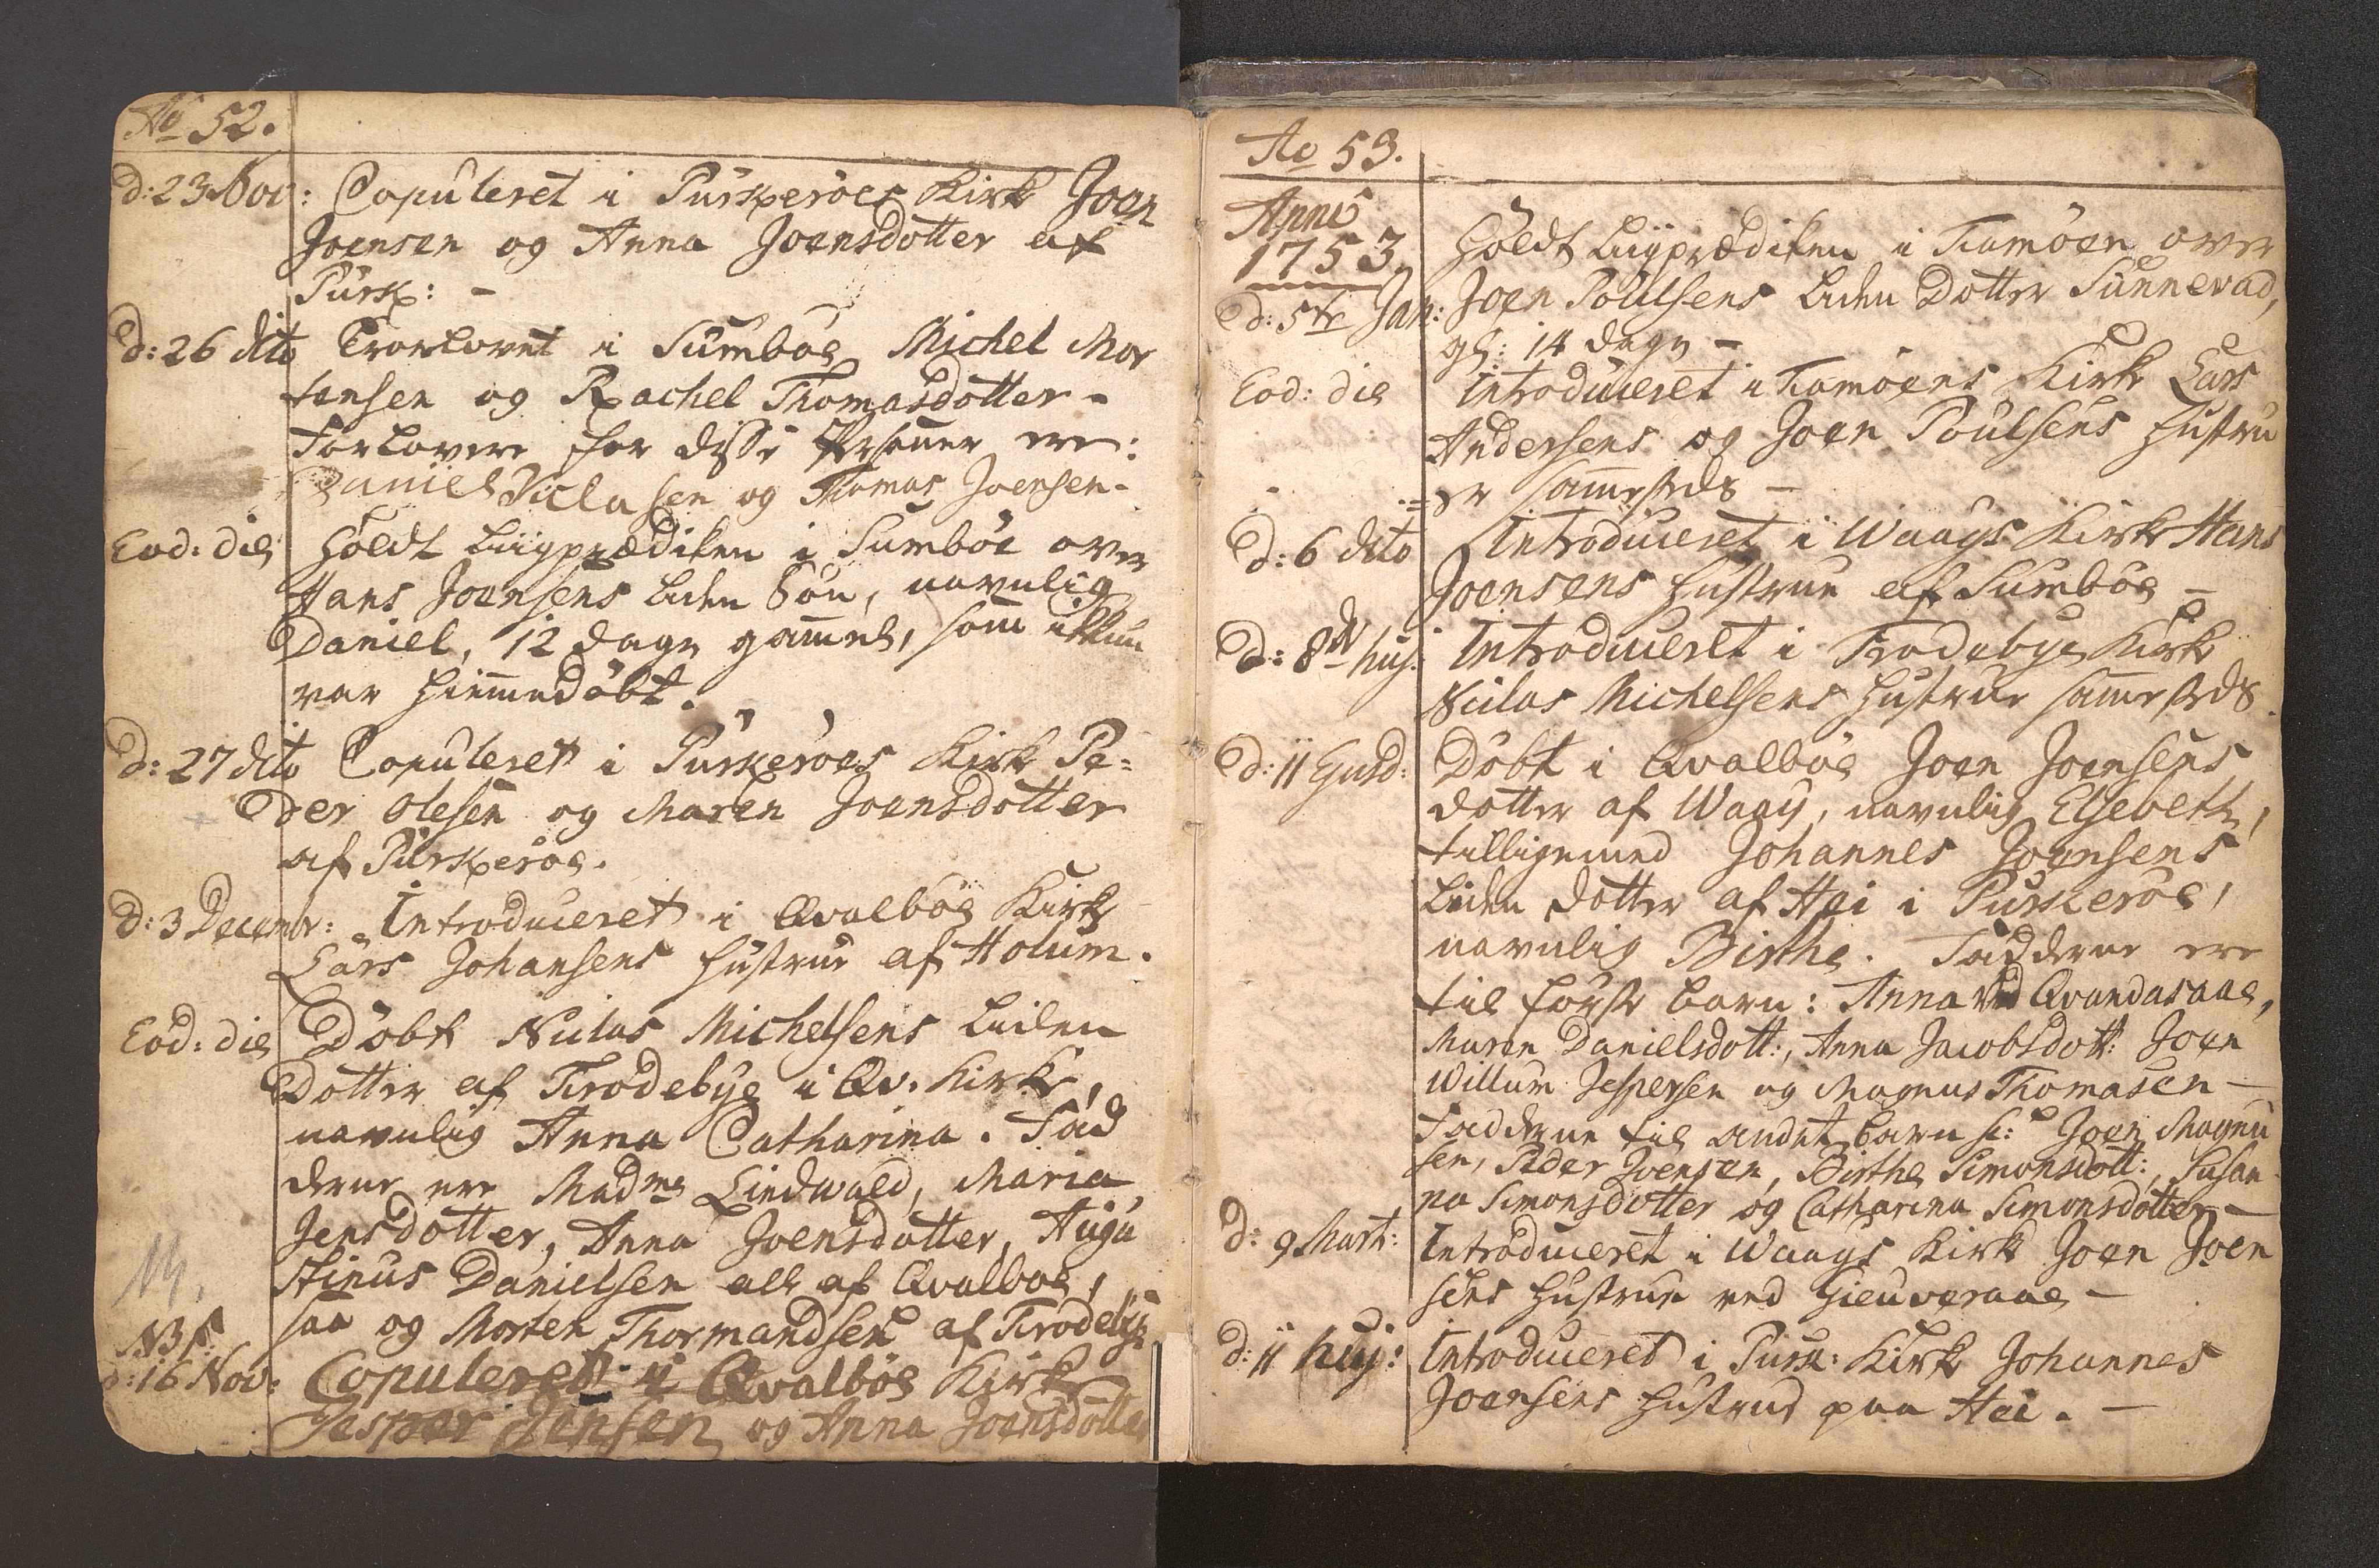 Ao 52.
d: 23 Nov: Copuleret i Purkeröes Kirk Joen
Joensen og Anna Joensdotter af
Purk: -
d: 26 dito Trorlovet i Sumböe Michel Mor
tensen og Rachel Thomasdotter -
Forlovere for disse Personer ere:
Daniel Niclasen og Thomas Joensen -
Eod: die Holdt Liigprædiken i Sumböe over
Hans Joensens liden Sön, navnlig
Daniel, 12 dage gammel, som ikkun
var hiemmedöbt.
d: 27 dito Copuleret i Purkeröes Kirk Pe-
der Olesen og Maren Joensdotter
af Purkeröe.
d: 3 Decembr: Introduceret i Qvalböe Kirk
Lars Johansens Hustrue af Holum.
Eod: die Döbt Niclas Michelsens liden
Dotter af Frodebye i Qv. Kirk,
navnlig Anna Catharina. Fad
derne ere Madme Lindwald, Maria
Jensdotter, Anna Joensdotter, Augu
stinus Danielsen all af Qvalboe,
saa og Morten Thormandsen af Frodebye
NB
d: 16 Nov: Copuleret i Qvalböe Kirk
Jesper Jensen og Anna Joensdotter
Ao 53.
Anno
1753
d: 5te Jan: Holdt Liigprædiken i Famöen over
Joen Poulsens liden Dotter Sunnevad,
gl: 14 dage -
Eod: die Introduceret i Famöens Kirk Lars
Andersens og Joen Poulsens Hustru
=er sammesteds -
d: 6 dito Introduceret i Waags Kirk Hans
Joensens Hustrue af Sumböe -
d: 8de huj: Introduceret i Frodebye Kirk
Niclas Michelsens Hustrue sammesteds.
d: 11 Ejusd: Döbt i Qvalböe Joen Joensens
dotter af Waag, navnlig Elsebeth,
tilligemed Johannes Joensens
liden dotter af Hei i Purkeröe,
navnlig Birthe. Fadderne ere
til förste barn: Anna ved Qvandasaae,
Maren Danielsdott:, Anna Jacobsdott: Joen
Willum Jespersen og Magnus Thomasen -
Fadderne til andet barn sc: Joen Magnu
sen, Peder Joensen, Birthe Simonsdott:, Susan
na Simonsdotter og Catharina Simonsdotter -
d: 9 Mart: Introduceret i Waags Kirk Joen Joen
sens Hustrue ved Gieuveraae -
d: 11 huj: Introduceret i Purk: Kirk Johannes
Joensens Hustrue paa Hei. -